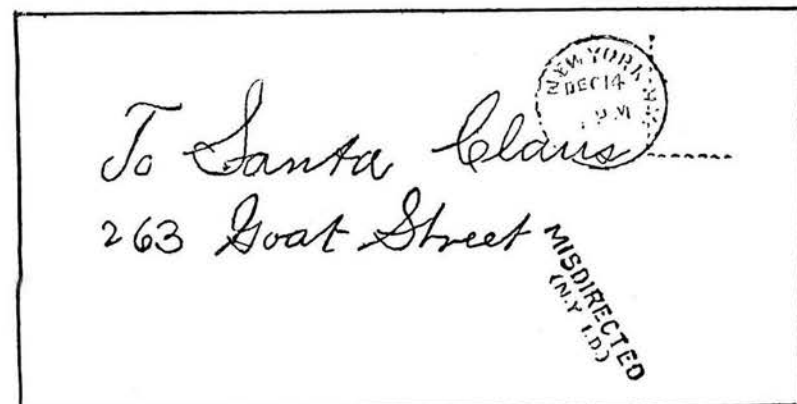 NEW YORK N.Y.
DEC 14
To Santa Claus
263 Goat Street
MISDIRECTED
(N.Y I.D.)